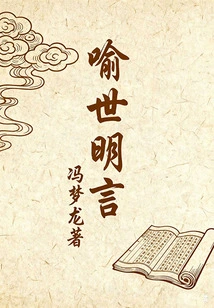 喻世明言
冯梦龙著